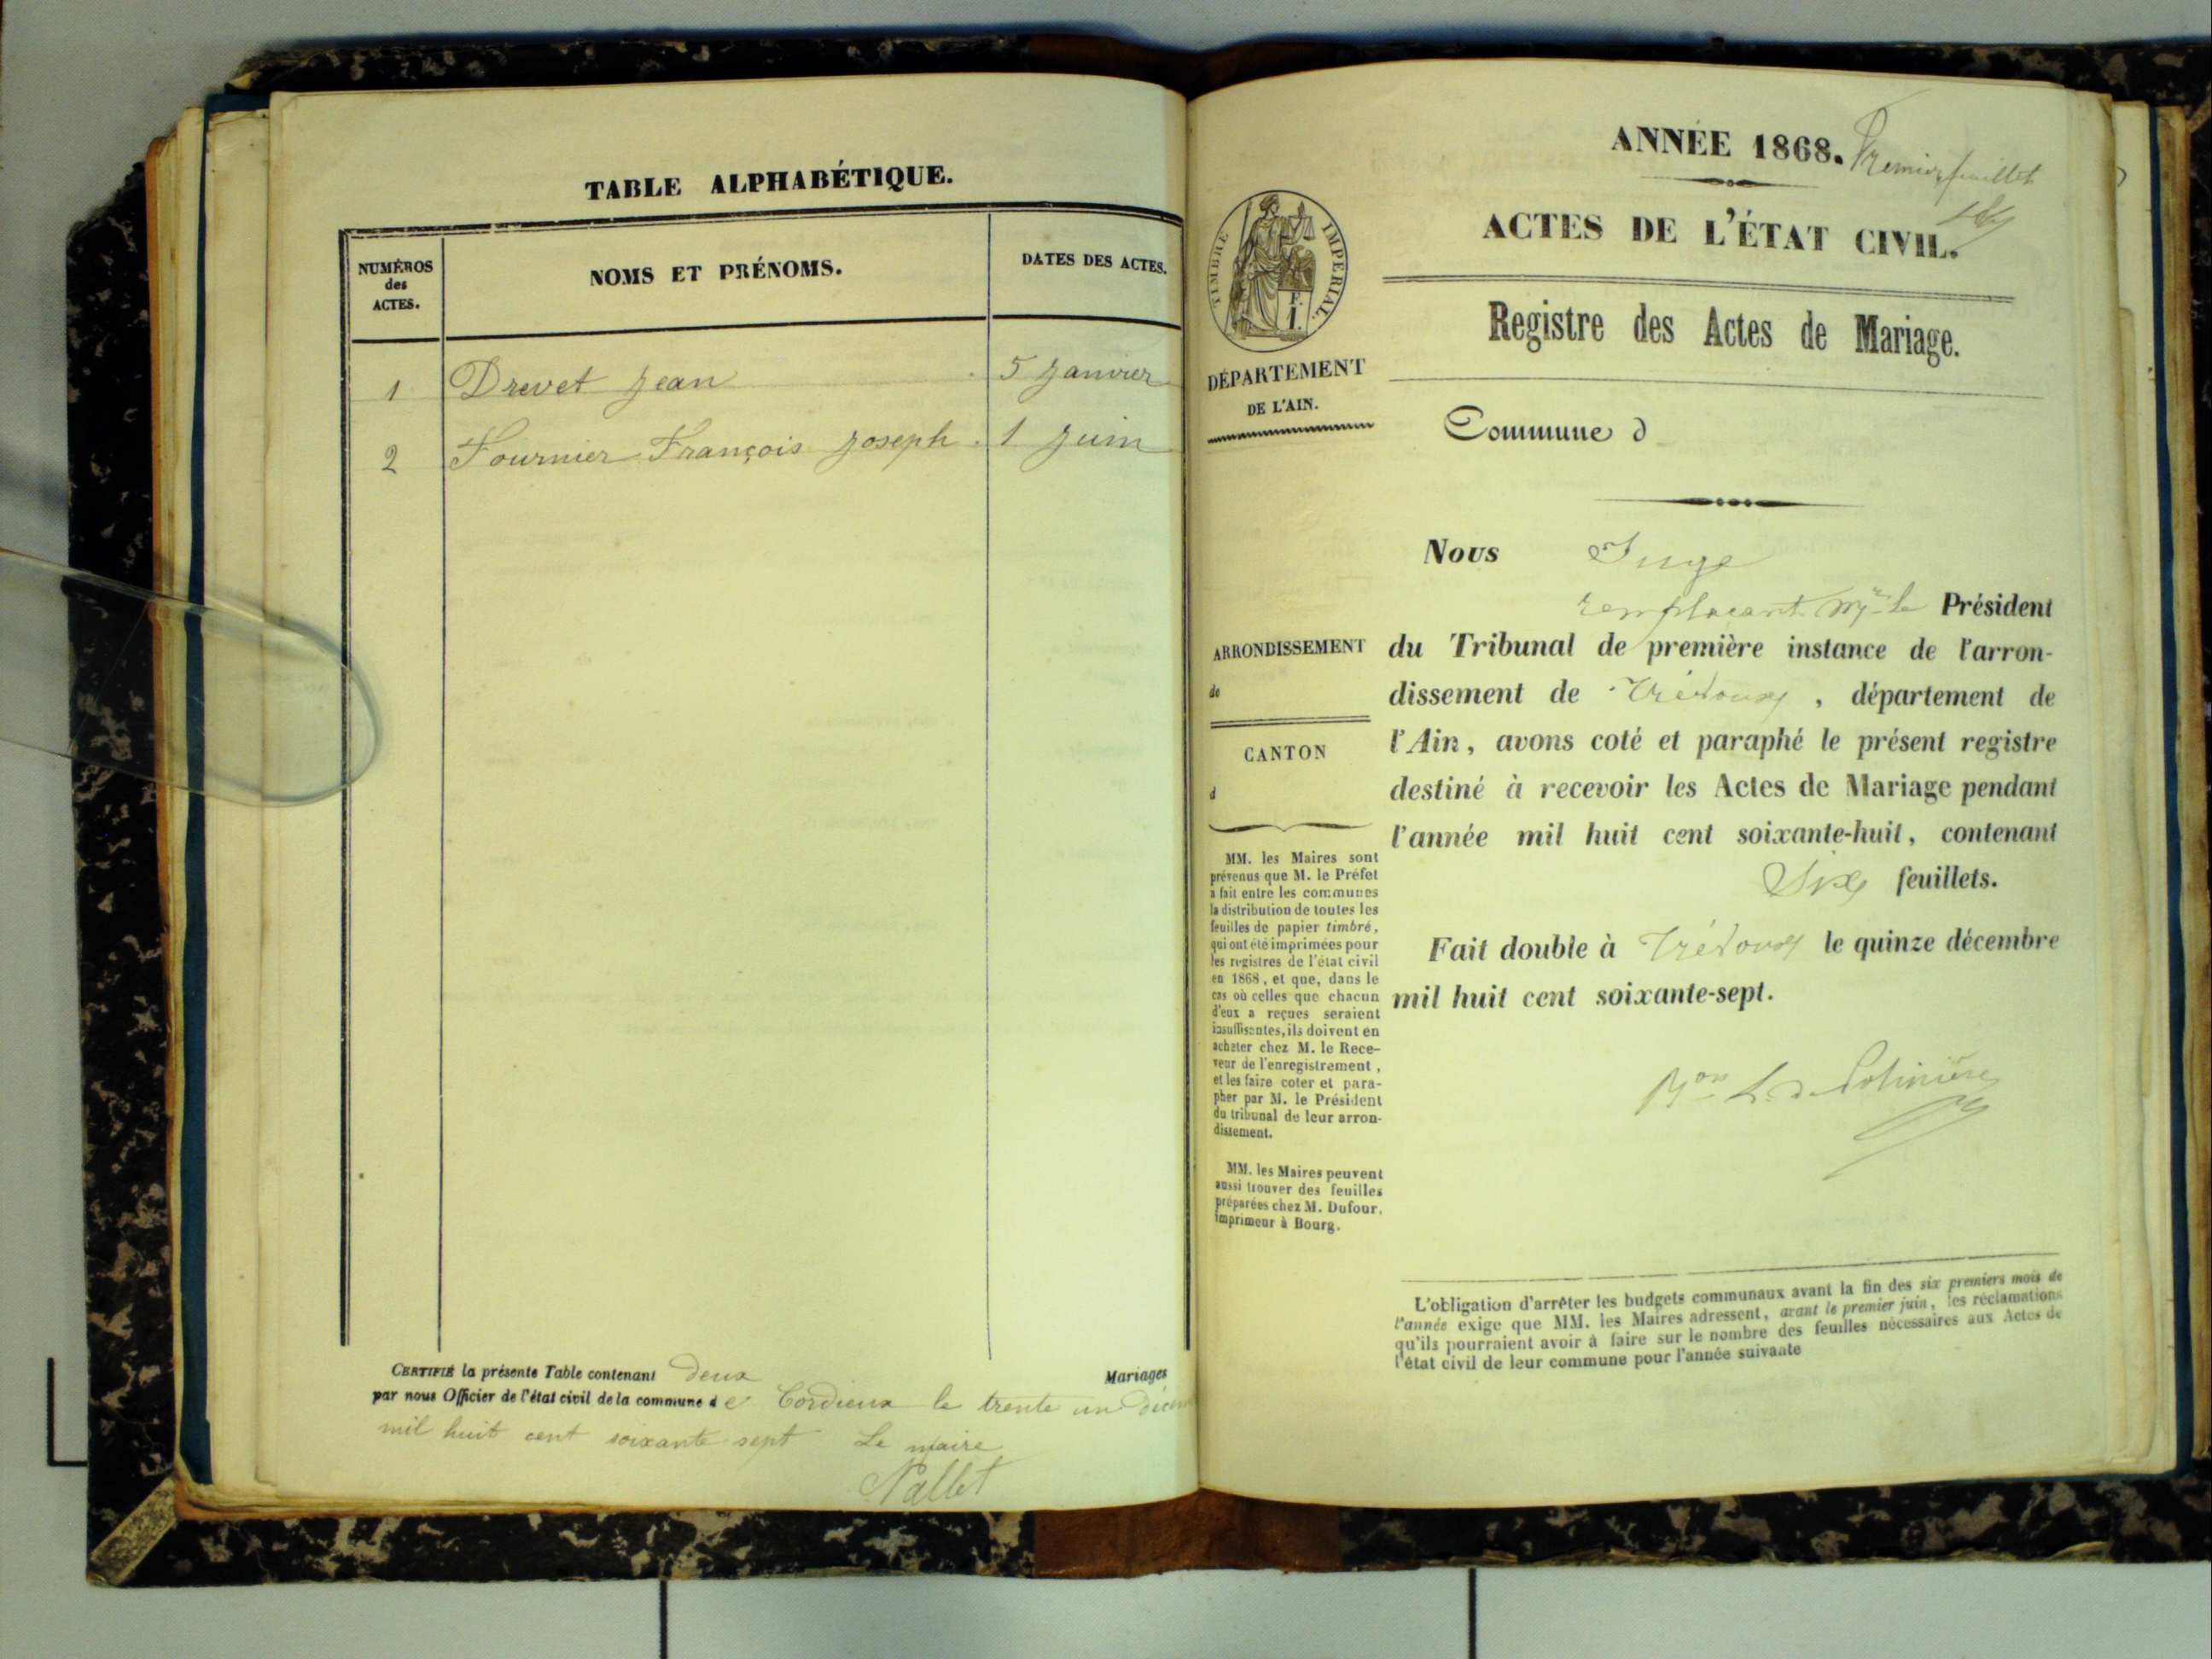 TABLE ALPHABÉTIQUE.
NUMÉROS
des
ACTES.
NOMS ET PRÉNOMS.
DATES DES ACTES.
1 Drevet Jean 5 Janvier
2 Fournier François Joseph 1 Juin
CERTIFIÉ la présente Table contenant deux Mariages
par nous Officier de l'état civil de la commune de Cordieux le trente un décem
mil huit cent soixante sept Le maire
Nallet
ANNÉE 1868. Premier feuillet
ACTES DE L'ÉTAT CIVIL.
TIMBRE IMPERIAL.
Registre des Actes de Mariage.
DÉPARTEMENT
DE L'AIN.
Commune d
Nous Juge
remplaçant Mr le Président
du Tribunal de première instance de l'arron-
dissement de Trévoux, département de
l'Ain, avons coté et paraphé le présent registre
destiné à recevoir les Actes de Mariage pendant
l'année mil huit cent soixante-huit, contenant
Six feuillets.
Fait double à Trévoux le quinze décembre
mil huit cent soixante-sept.
Bon L. de Polinière
ARRONDISSEMENT
de
CANTON
d
MM. les Maires sont
prévenus que M. le Préfet
a fait entre les communes
la distribution de toutes les
feuilles de papier timbré,
qui ont été imprimées pour
les registres de l'état civil
en 1868, et que, dans le
cas où celles que chacun
d'eux a reçues seraient
insuffisantes, ils doivent en
acheter chez M. le Rece-
veur de l'enregistrement,
et les faire coter et para-
pher par M. le Président
du tribunal de leur arron-
dissement.
MM. les Maires peuvent
aussi trouver des feuilles
préparées chez M. Dufour,
imprimeur à Bourg.
L'obligation d'arrêter les budgets communaux avant la fin des six premiers mois de
l'année exige que MM. les Maires adressent, avant le premier juin, les réclamations
qu'ils pourraient avoir à faire sur le nombre des feuilles nécessaires aux Actes de
l'état civil de leur commune pour l'année suivante